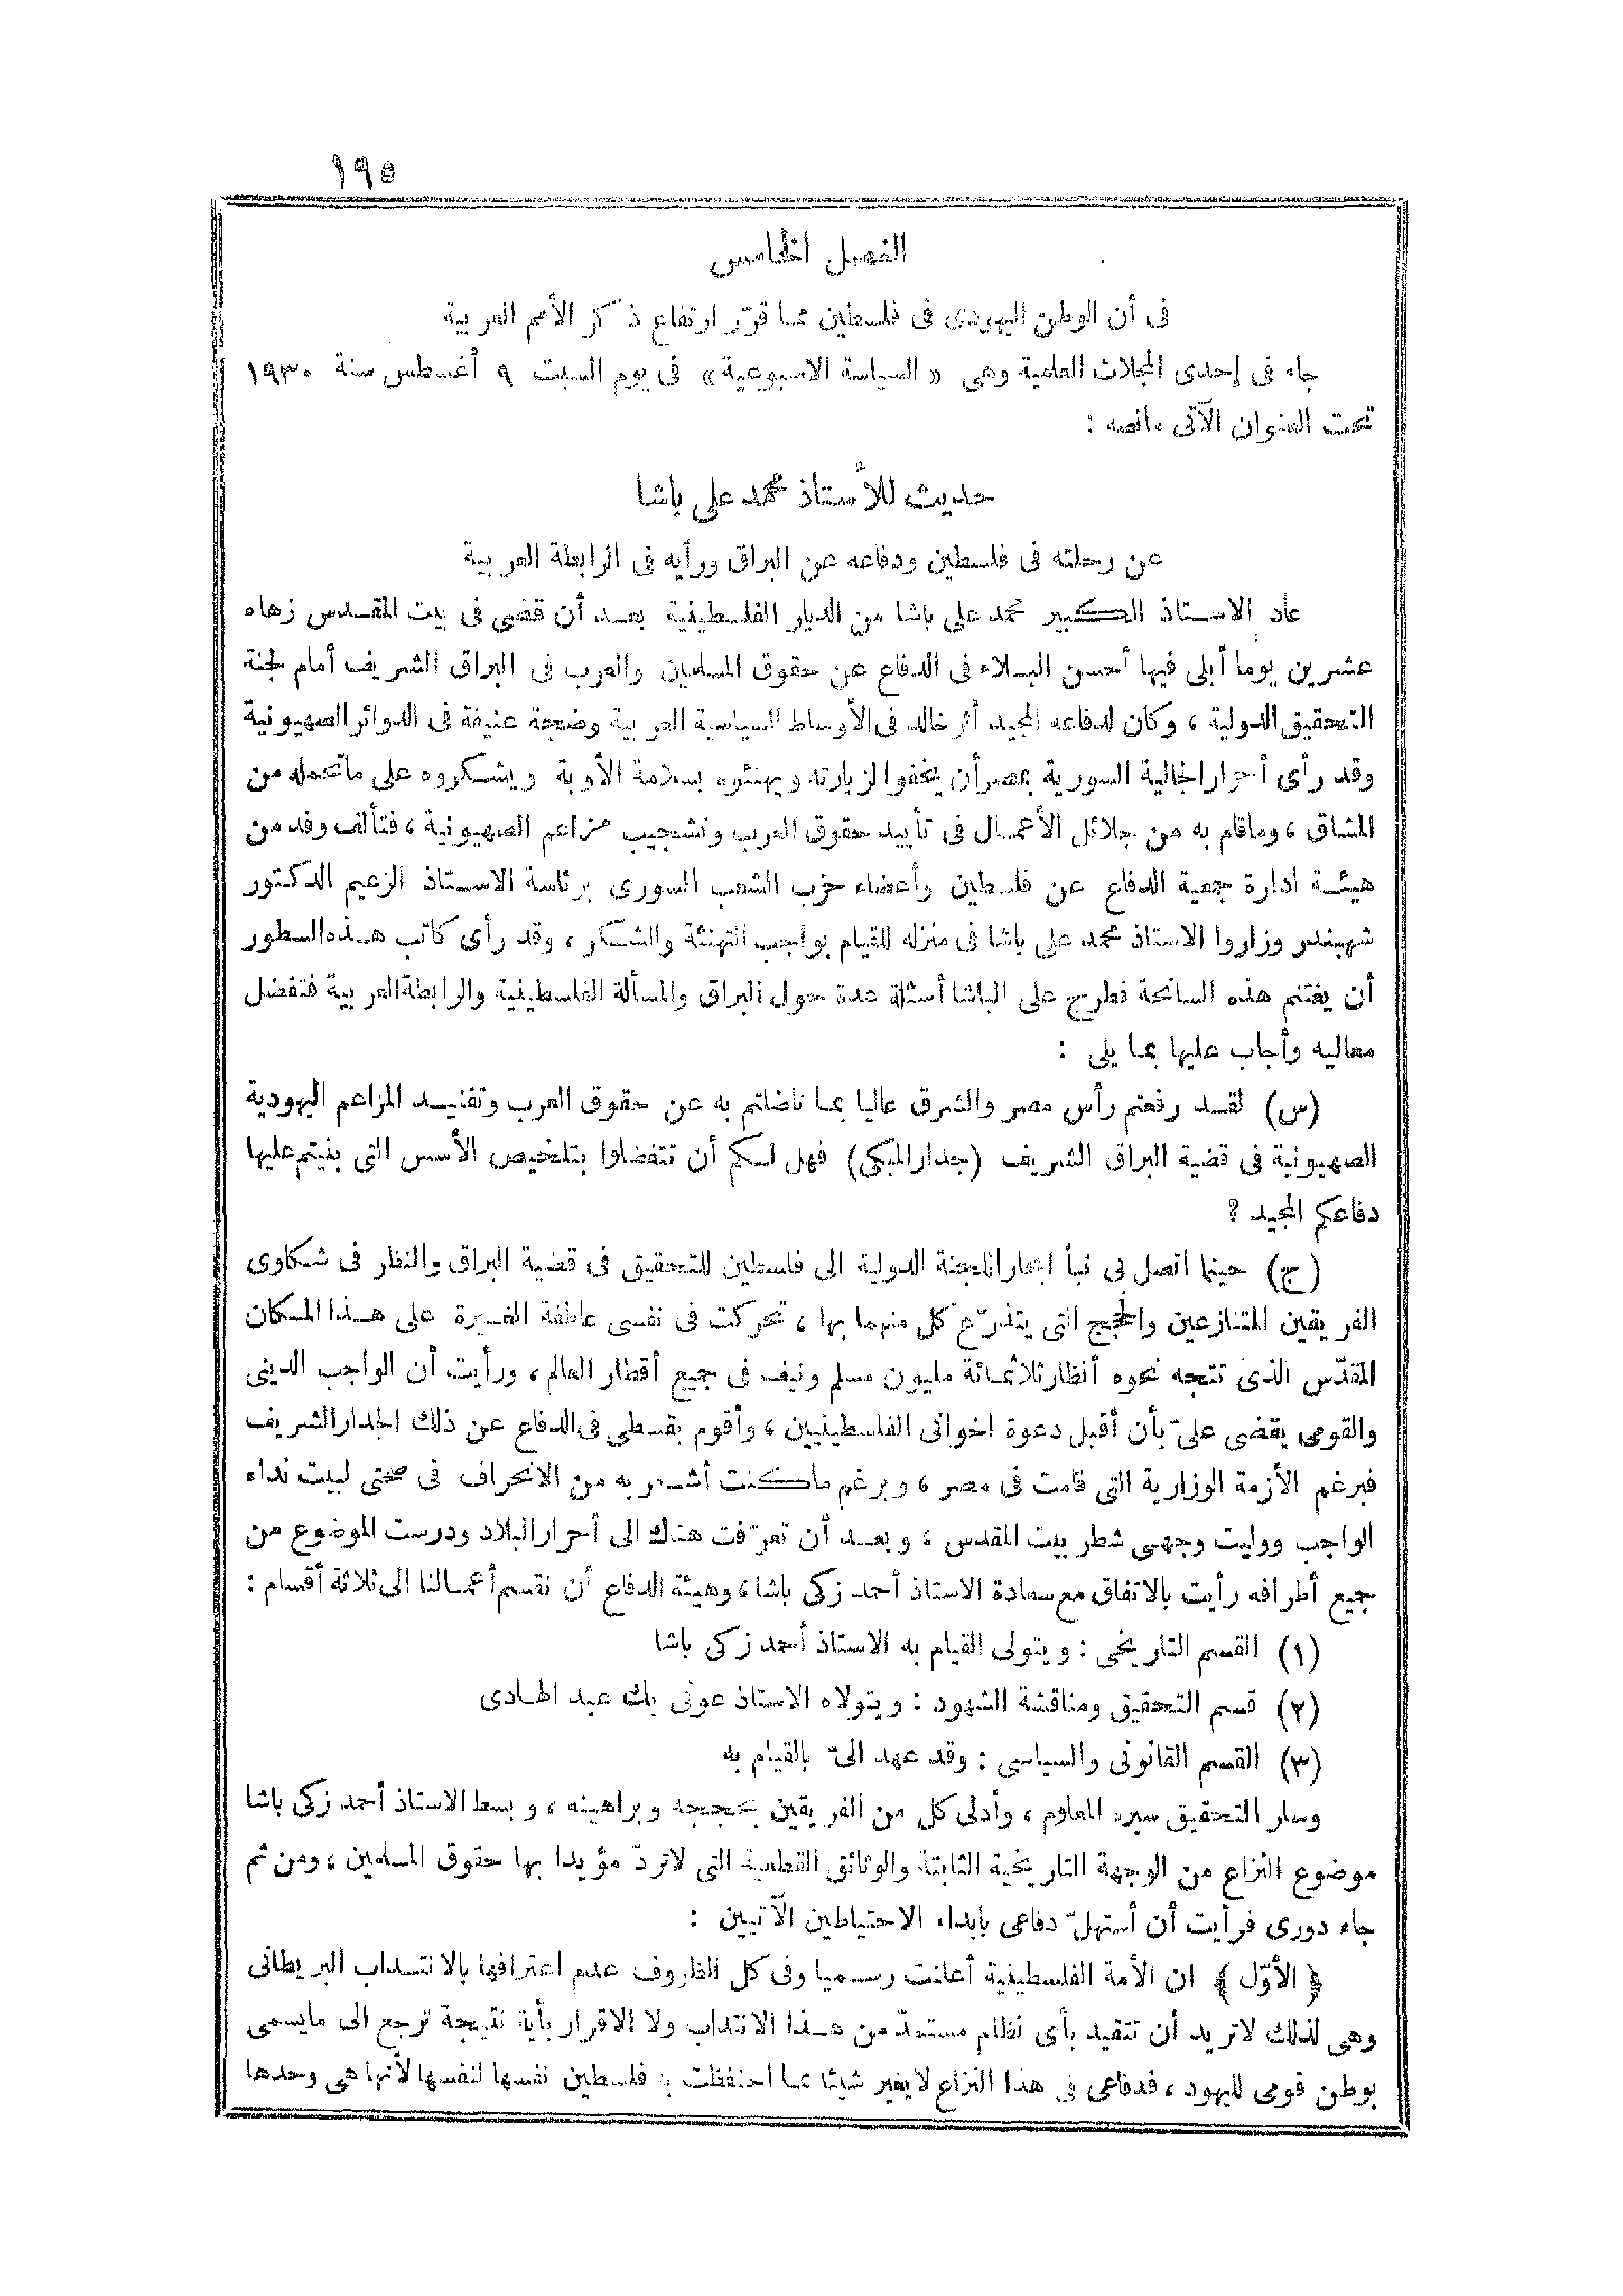 ١٩٥
الفصل الخامس
فى أن الوطن اليهودى فى فلسطين مما قرّر ارتفاع ذكر الأمم العربية
جاء فى إحدى المجلات العلمية وهى «السياسة الاسبوعية» فى يوم السبت ٩ أغسطس سنة ١٩٣٠
تحت العنوان الآتى مانصه :
حديث للأستاذ محمد على باشا
عن رحلته فى فلسطين ودفاعه عن البراق ورأيه فى الرابطة العربية
عاد الاستاذ الكبير محمد على باشا من الديار الفلسطينية بعد أن قضى فى بيت المقدس زهاء
عشرين يوما أبلى فيها أحسن البلاء فى الدفاع عن حقوق المسلمين والعرب فى البراق الشريف أمام لجنة
التحقيق الدولية ، وكان لدفاعه المجيد أثر خالد فى الأوساط السياسية العربية وضجة عنيفة فى الدوائر الصهيونية
وقد رأى أحرار الجالية السورية بمصر أن يخفوا لزيارته ويهنئوه بسلامة الأوبة ويشكروه على ماتحمله من
المشاق ، وماقام به من جلائل الأعمال فى تأييد حقوق العرب وتشجيب مزاعم الصهيونية ، فتألف وفد من
هيئة ادارة جمعية الدفاع عن فلسطين وأعضاء حزب الشعب السورى برئاسة الاستاذ الزعيم الدكتور
شهبندر وزاروا الاستاذ محمد على باشا فى منزله للقيام بواجب التهنئة والشكر ، وقد رأى كاتب هذه السطور
أن يغتنم هذه السانحة فطرح على الباشا أسئلة عدة حول البراق والمسألة الفلسطينية والرابطة العربية فتفضل
معاليه وأجاب عليها بما يلى :
(س) لقد رفعتم رأس مصر والشرق عاليا بما ناضلتم به عن حقوق العرب وتفنيد المزاعم اليهودية
الصهيونية فى قضية البراق الشريف (جدار المبكى) فهل لكم أن تتفضلوا بتلخيص الأسس التى بنيتم عليها
دفاعكم المجيد ؟
(ج) حينما اتصل بى نبأ ابحار اللجنة الدولية الى فلسطين للتحقيق فى قضية البراق والنظر فى شكاوى
الفريقين المتنازعين والحجج التى يتذرّع كل منهما بها ، تحركت فى نفسى عاطفة الغيرة على هذا المكان
المقدّس الذى تتجه نحوه أنظار ثلاثمائة مليون مسلم ونيف فى جميع أقطار العالم ، ورأيت أن الواجب الدينى
والقومى يقضى علىّ بأن أقبل دعوة اخوانى الفلسطينيين ، وأقوم بقسطى فى الدفاع عن ذلك الجدار الشريف
فبرغم الأزمة الوزارية التى قامت فى مصر ، وبرغم ماكنت أشعر به من الانحراف فى صحتى لبيت نداء
الواجب ووليت وجهى شطر بيت المقدس ، وبعد أن تعرّفت هناك الى أحرار البلاد ودرست الموضوع من
جميع أطرافه رأيت بالاتفاق مع سعادة الاستاذ أحمد زكى باشا ، وهيئة الدفاع أن نقسم أعمالنا الى ثلاثة أقسام :
(١) القسم التاريخى : ويتولى القيام به الاستاذ أحمد زكى باشا
(٢) قسم التحقيق ومناقشة الشهود : ويتولاه الاستاذ عونى بك عبد الهادى
(٣) القسم القانونى والسياسى : وقد عهد الىّ بالقيام به
وسار التحقيق سيره المعلوم ، وأدلى كل من الفريقين بحججه وبراهينه ، وبسط الاستاذ أحمد زكى باشا
موضوع النزاع من الوجهة التاريخية الثابتة والوثائق القطعية التى لاتردّ مؤيدا بها حقوق المسلمين ، ومن ثم
جاء دورى فرأيت أن أستهلّ دفاعى بابداء الاحتياطين الآتيين :
﴿ الأوّل ﴾ ان الأمة الفلسطينية أعلنت رسميا وفى كل الظروف عدم اعترافها بالانتداب البريطانى
وهى لذلك لاتريد أن تتقيد بأى نظام مستمدّ من هذا الانتداب ولا الاقرار بأية نتيجة ترجع الى مايسمى
بوطن قومى لليهود ، فدفاعى فى هذا النزاع لايغير شيئا مما احتفظت به فلسطين نفسها لنفسها لأنها هى وحدها